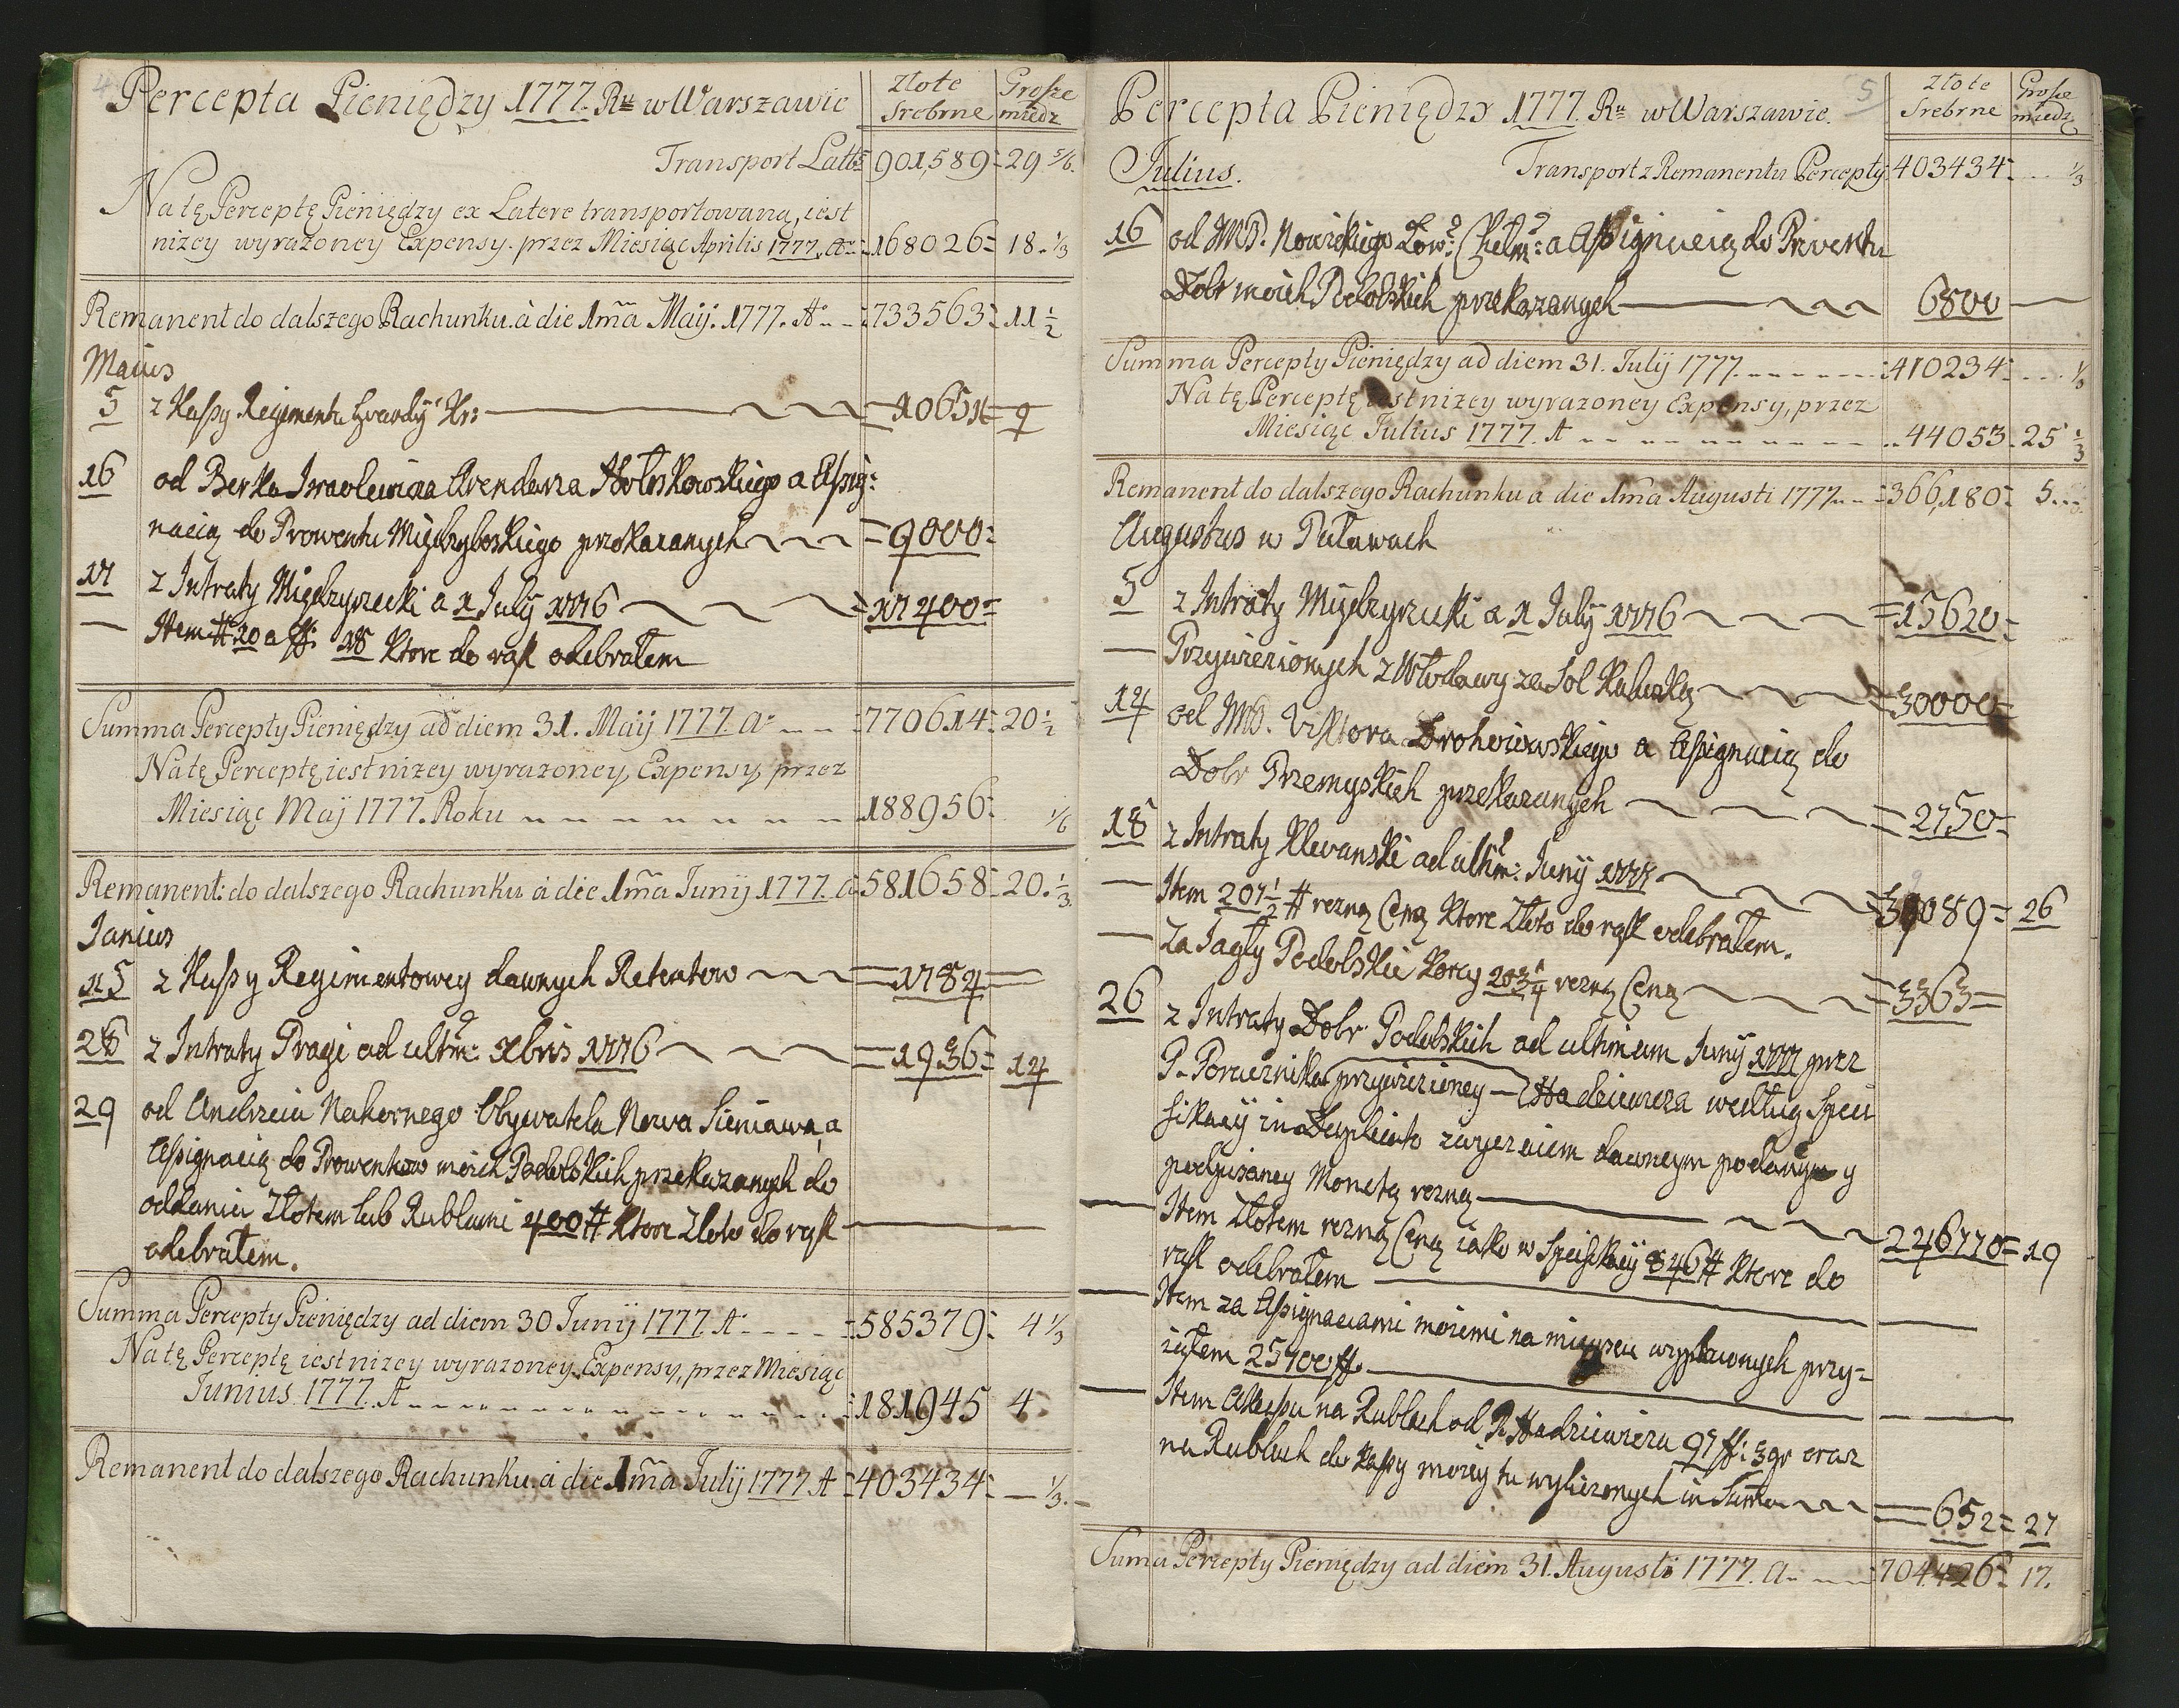 4
Percepta Pieniędzy 1777. Ru w Warszawie
Złote Srebrne
Grosze miedz
Transport Latis 901,589 29 5/6
Na tę Perceptę Pieniędzy ex Latere transportowaną, iest
nizey wyrazoney Expensy przez Miesiąc Aprilis 1777. A 168026 18 1/3
Remanent do dalszego Rachunku à die 1ma Maij. 1777. A 733563 11 1/2
Maius
5 z Kassy Regimentu Gwardÿ Kr: 10651 9
16 od Berka Izraelewicza Arendarza Wołoskowskiego a Assig:
nacią do Prowentu Międzyboskiego przekazanych 9000
17 z Intraty Międzyrzecki a 1 July 1776 17400
— Item # 20 a ff: 18 ktore do rąk odebrałem
Summa Percepty Pieniędzy ad diem 31. Maij 1777. A 770614 20 1/2
Na tę Perceptę iest nizey wyrazoney Expensy, przez
Miesiąc Maij 1777. Roku 188956 1/6
Remanent: do dalszego Rachunku à die 1ma Junij 1777. A 581658 20. 1/3
Junius
15 z Kassy Regimentowey dawnych Retentow 1784
26 z Intraty Pragi ad ultm: Xbris 1776 1936 14
29 od Andrzeia Nakornego Obywatela Nowa Sieniawa, a
Assignacią do Prowentow moich Podolskich przekazanych do
oddania Złotem lub Rublami 400 # ktore Złoto do rąk
odebrałem.
Summa Percepty Pieniędzy ad diem 30 Junij 1777. A 585379 4 1/3
Na tę Perceptę iest nizey wyrazoney Expensy, przez Miesiąc
Junius 1777. A 181945 4
Remanent do dalszego Rachunku à die 1ma Julij 1777 A 403434 — 1/3
5
Percepta Pieniędzy 1777. Ru w Warszawie.
Złote Srebrne
Grosze miedz
Julius.
Transport z Remanentu Percepty 403434 1/3
16 od JMP. Nowickiego Łow: Chełm: a Assignacią do Prowentu
Dobr moich Podolskich przekazanych 6800
Summa Percepty Pieniędzy ad diem 31. July 1777. 410234 1/3
Na tę Perceptę iest nizey wyrazoney Expensy, przez
Miesiąc Julius 1777. A 44053 25 1/3
Remanent do dalszego Rachunku à die 1ma Augusti 1777. 366,180 5
Augustus w Puławach
5 z Intraty Międzyrzecki a 1 July 1776 15620
— Przywiezionych z Włodawy za Sol Kaluską 30000
14 od JMP. Wiktora Drohoiowskiego a Assignacią do
Dobr Przemyskich przekazanych 2750
18 z Intraty Klevanski ad ultm: Junÿ 1777 39089 26
— Item 207 1/2 # rożną Ceną ktore Złoto do rąk odebrałem.
— Za Jagły Podolskie Korcy 203 1/4 rożną Ceną 3363
26 z Intraty Dobr Podolskich ad ultimam Junÿ 1777 przez
P. Porucznika przywiezioney — Hadziewicza według Speci
fikacÿ in Duplicato zwyczaiem dawnym podaney y
podpisaney Monetą rożną 246770 19
— Item Złotem rożną Ceną iako w Specifikacÿ 846 # ktore do
rąk odebrałem
— Item za Assignaciami moiemi na mieyscu wypłaconych przy=
iąłem 25700 ff.
— Item Akcessu na Rublach od P. Hadziewicza 97 ff: 3 gr oraz
na Rublach do Kassy moiey tu wyliczonych in Suma 652 27
Suma Percepty Pieniędzy ad diem 31. Augusti 1777. A 704426 17.